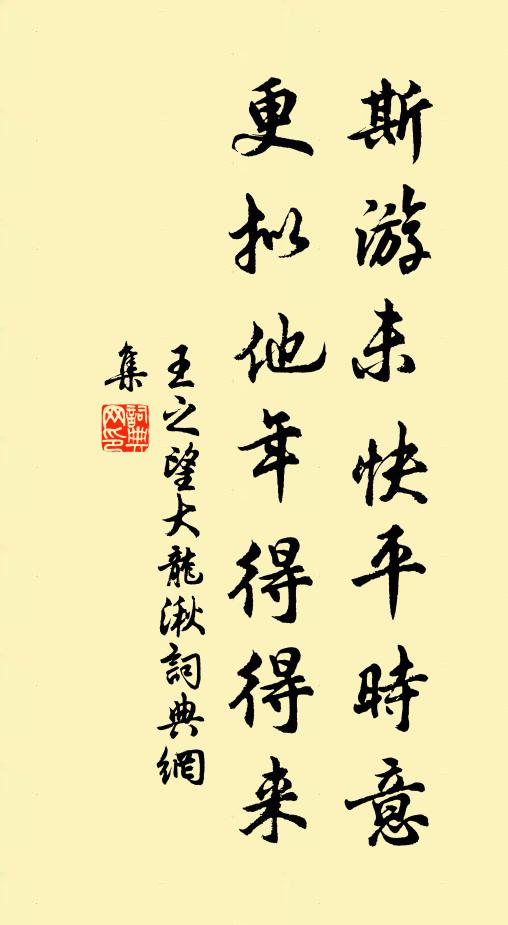 斯游未快平時意
更拟他年得得来
王之望大龍湫詞典網
集
詞典网印